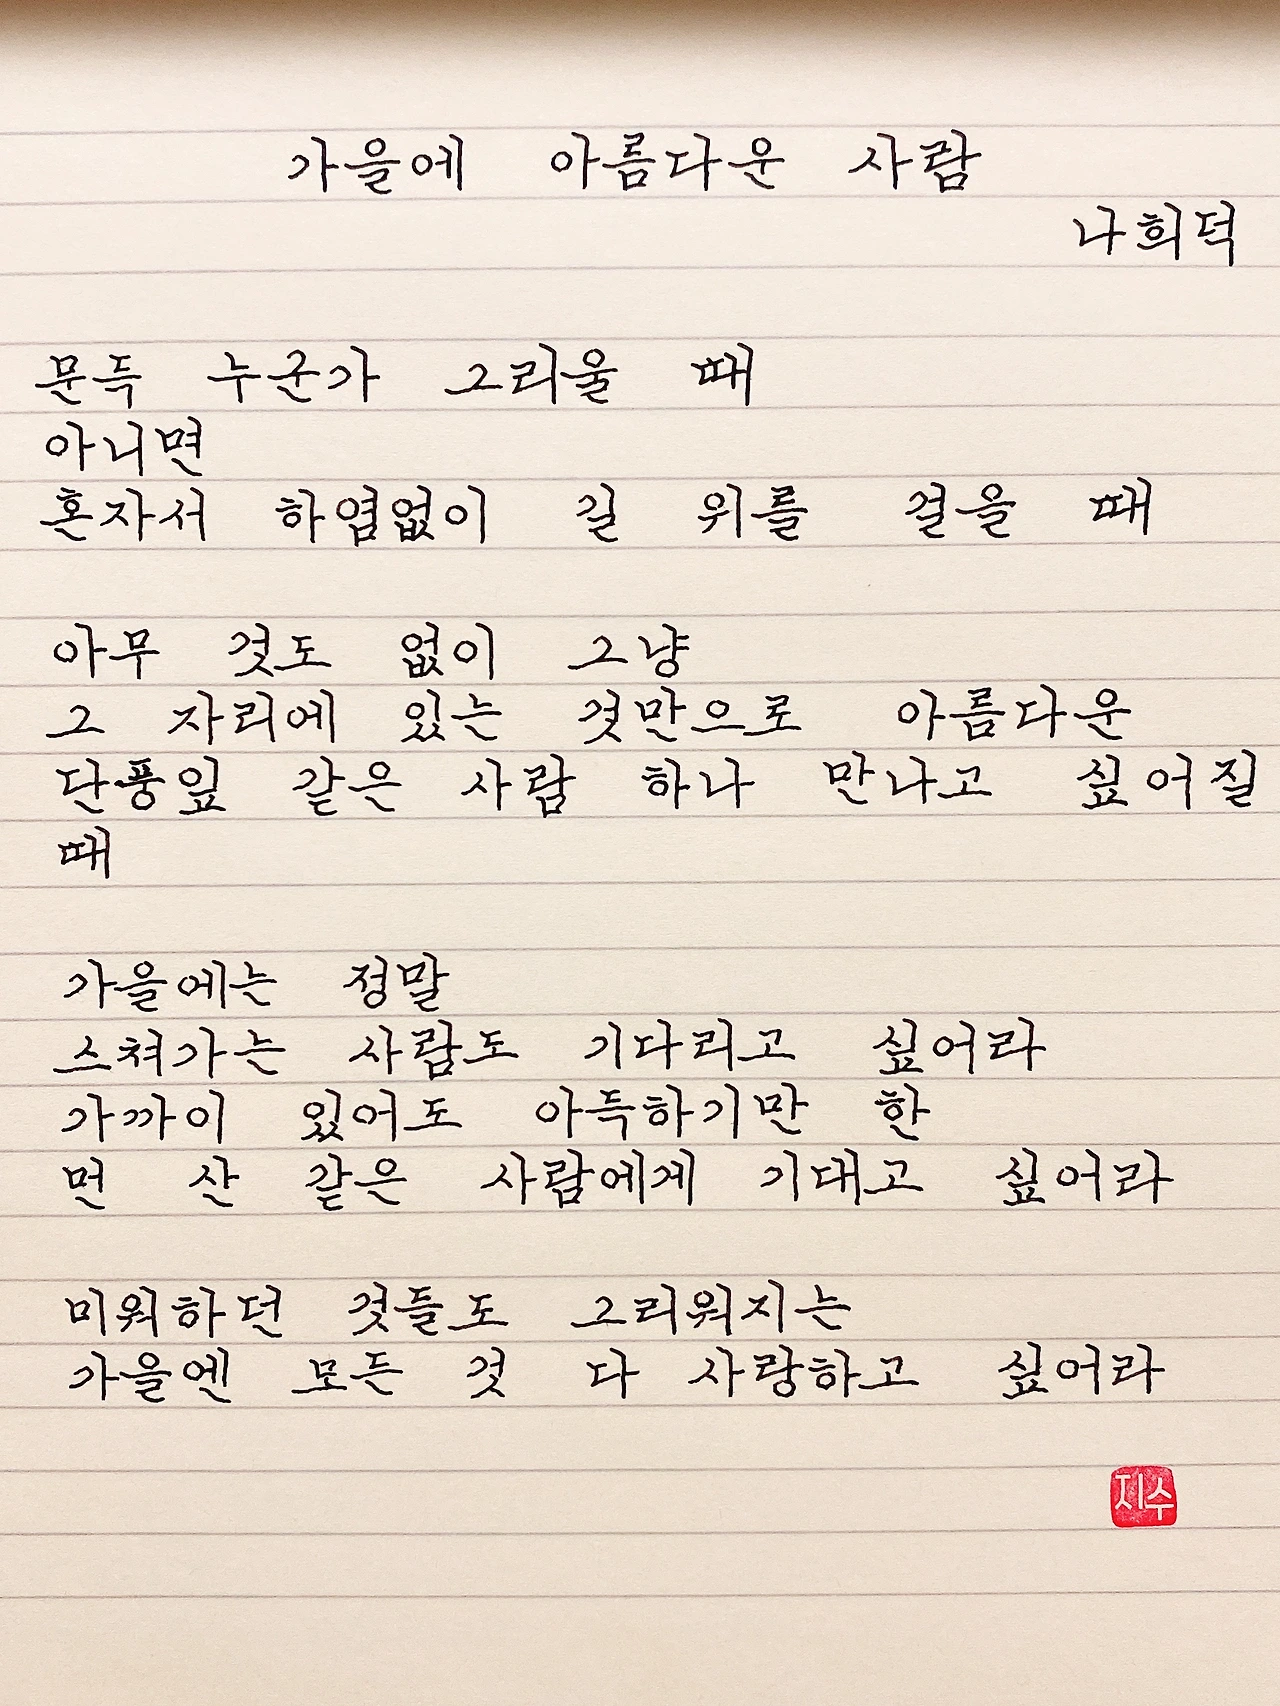 가을에 아름다운 사람
나희덕
문득 누군가 그리울 때
아니면
혼자서 하염없이 길 위를 걸을 때
아무 것도 없이 그냥
그 자리에 있는 것만으로 아름다운
단풍잎 같은 사람 하나 만나고 싶어질
때
가을에는 정말
스쳐가는 사람도 기다리고 싶어라
가까이 있어도 아득하기만 한
먼 산 같은 사람에게 기대고 싶어라
미워하던 것들도 그리워지는
가을엔 모든 것 다 사랑하고 싶어라
지수